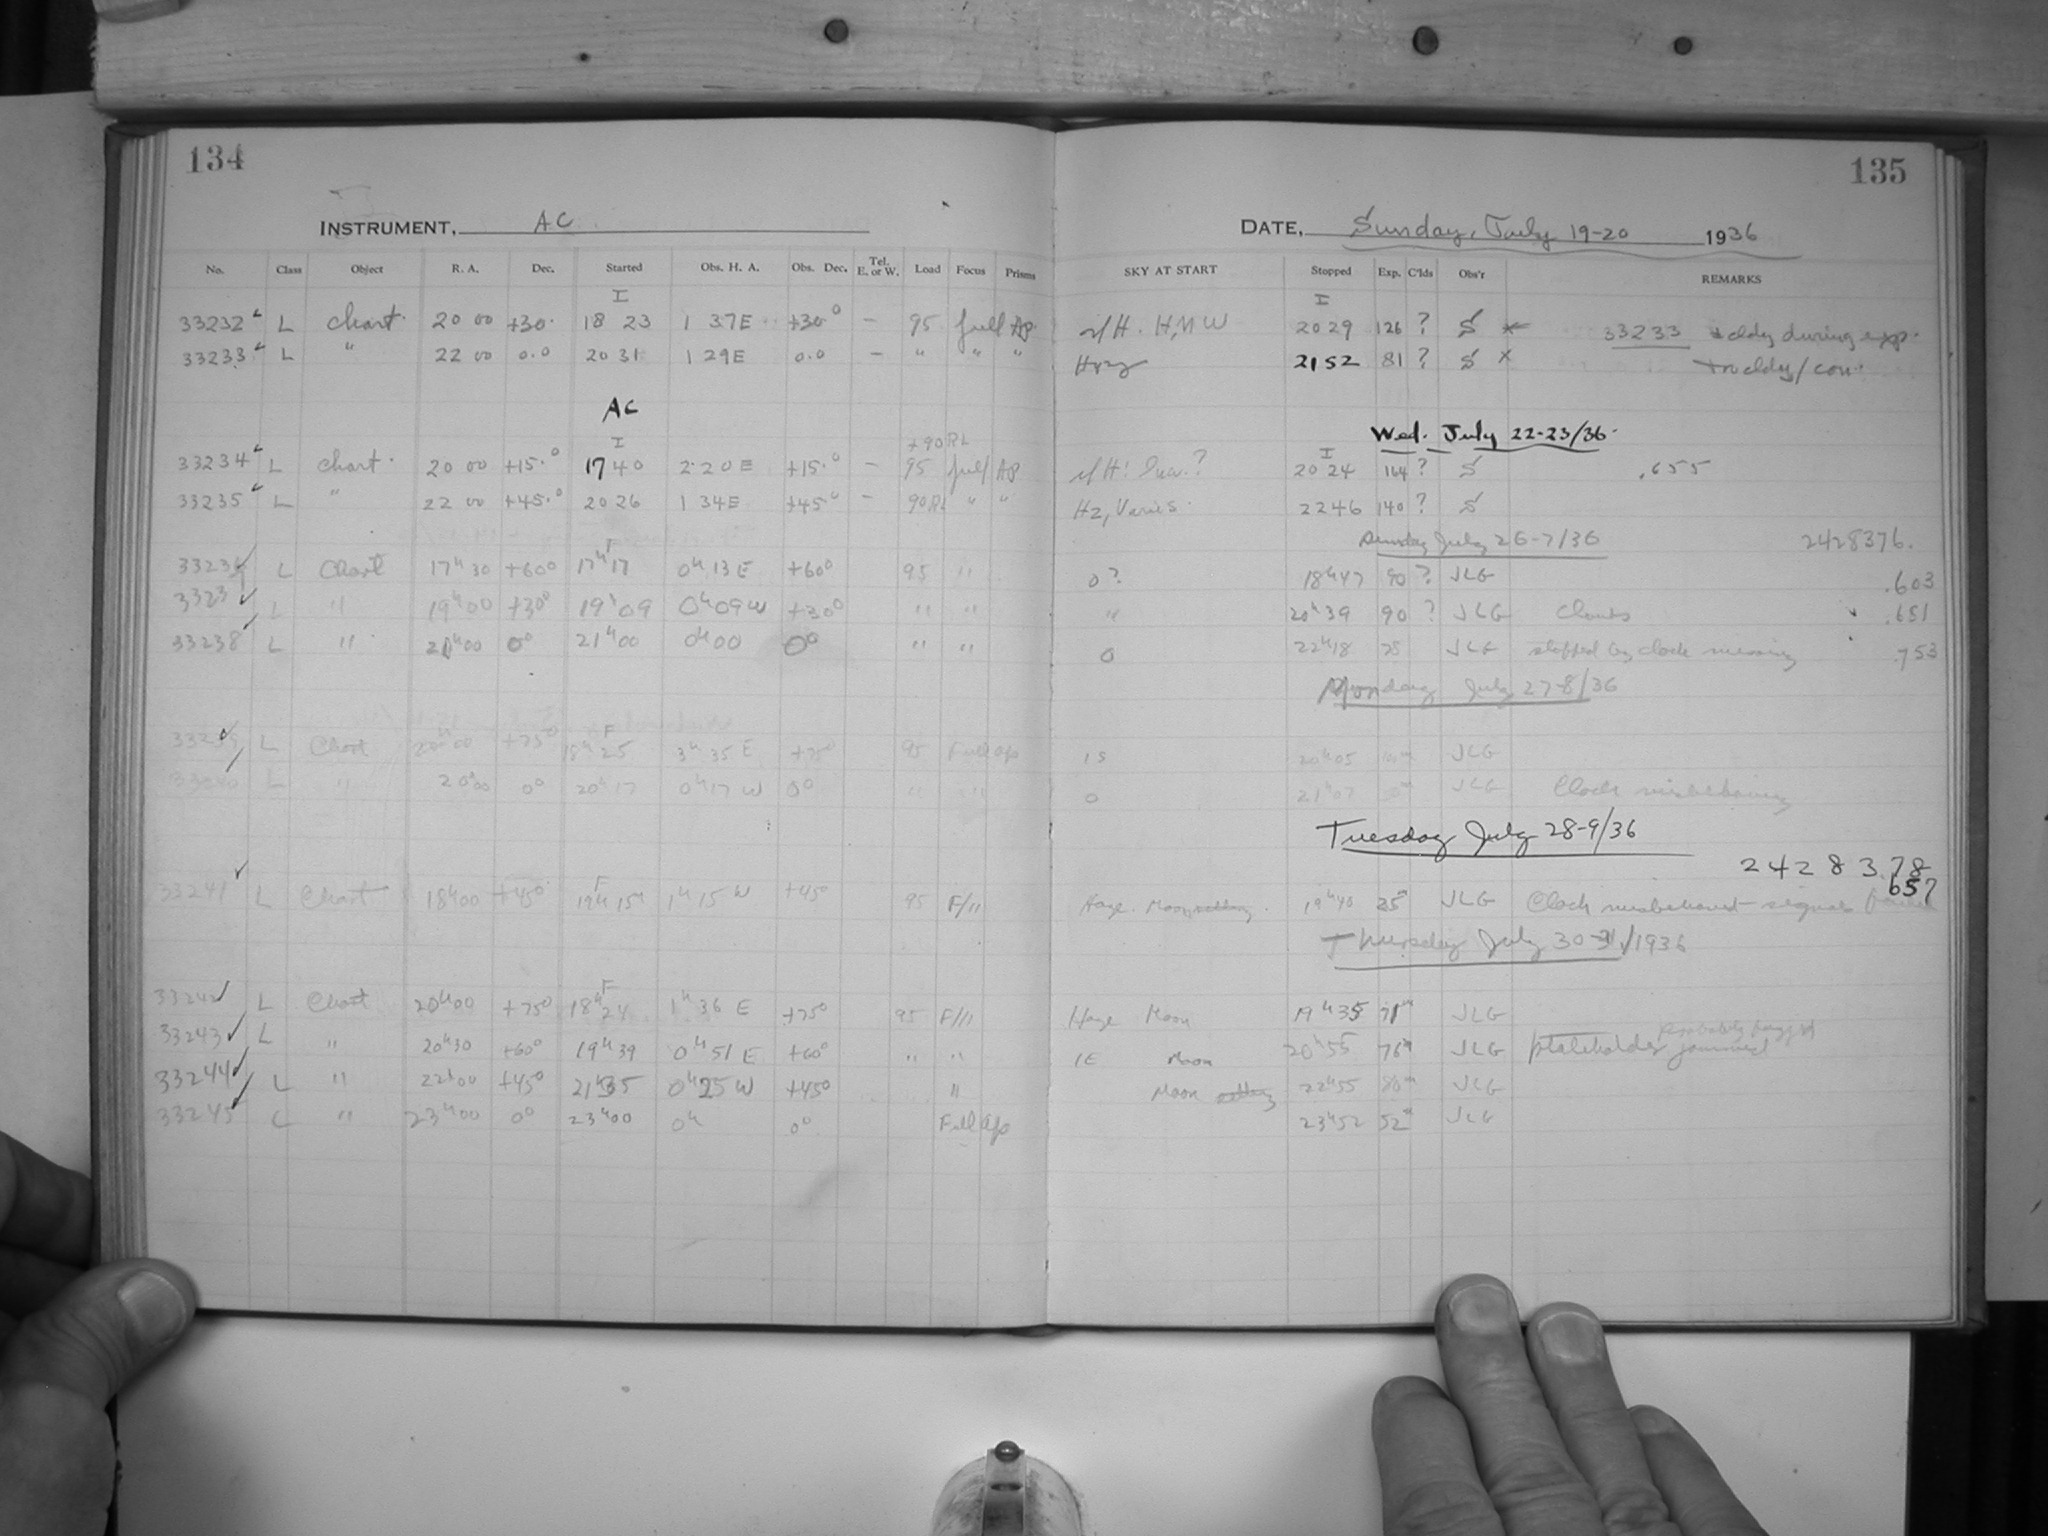 134
135
INSTRUMENT, AC
DATE, Sunday, July 19-20 1936
No. Class Object R. A. Dec. Started Obs. H. A. Obs. Dec. Tel. E. or W. Load Focus Prisms SKY AT START Stopped Exp. C'lds Obs'r REMARKS
I I
33232 L Chart. 20 00 +30. 18 23 1 37E +30.° – 95 full Ap H, NW 20 29 126 ? S 33233 cldy during exp.
33233 L " 22 00 0.0 20 31 1 29E 0.0 – " " " Hazy 2152 81 ? S x
AC
Wed. July 22-23/36.
I +90RL I
33234 L Chart. 20 00 +15.° 1740 2 20 E +15.° – 95 full Ap 20 24 164 ? S .655
33235 L " 22 00 +45.° 20 26 1 34E +45° – 90RL " " Hz, Varies. 2246 140 ? S
Sunday July 26-7/36 2428376.
F
33236 L Chart 17ʰ30 +60° 17ʰ17 0ʰ13 E +60° 95 " 0? 18ʰ47 90 ? JLG .603
33237 L " 19ʰ00 +30° 19ʰ09 0ʰ09W +30° " " " 20ʰ39 90 ? JLG Clouds .651
33238 L " 21ʰ00 0° 21ʰ00 0ʰ00 0° " " 0 22ʰ18 78 JLG stopped by clock .753
Monday July 27-8/36
F
33239 L Chart 20ʰ00 +75° 18ʰ25 3ʰ35 E +75° 95 Full Ap 1S 20ʰ05 JLG
33240 L " 20ʰ00 0° 20ʰ17 0ʰ17 W 0° " " 0 21ʰ07 JLG Clock misbehaving
Tuesday July 28-9/36
2428378
.657
F
33241 L Chart 18ʰ00 +45° 19ʰ15 1ʰ15 W +45° 95 F/11 Haze. Moon 19ʰ40 25ᵐ JLG Clock misbehaved – signals
Thursday July 30-31/1936
F
33242 L Chart 20ʰ00 +75° 18ʰ24 1ʰ36 E +75° 95 F/11 Haze Moon 19ʰ35 71ᵐ JLG
33243 L " 20ʰ30 +60° 19ʰ39 0ʰ51 E +60° " " 1E Moon 20ʰ55 76ᵐ JLG Plateholder probably jammed
33244 L " 22ʰ00 +45° 21ʰ35 0ʰ25 W +45° " Moon setting 22ʰ55 80ᵐ JLG
33245 L " 23ʰ00 0° 23ʰ00 0ʰ 0° Full Ap 23ʰ52 52ᵐ JLG